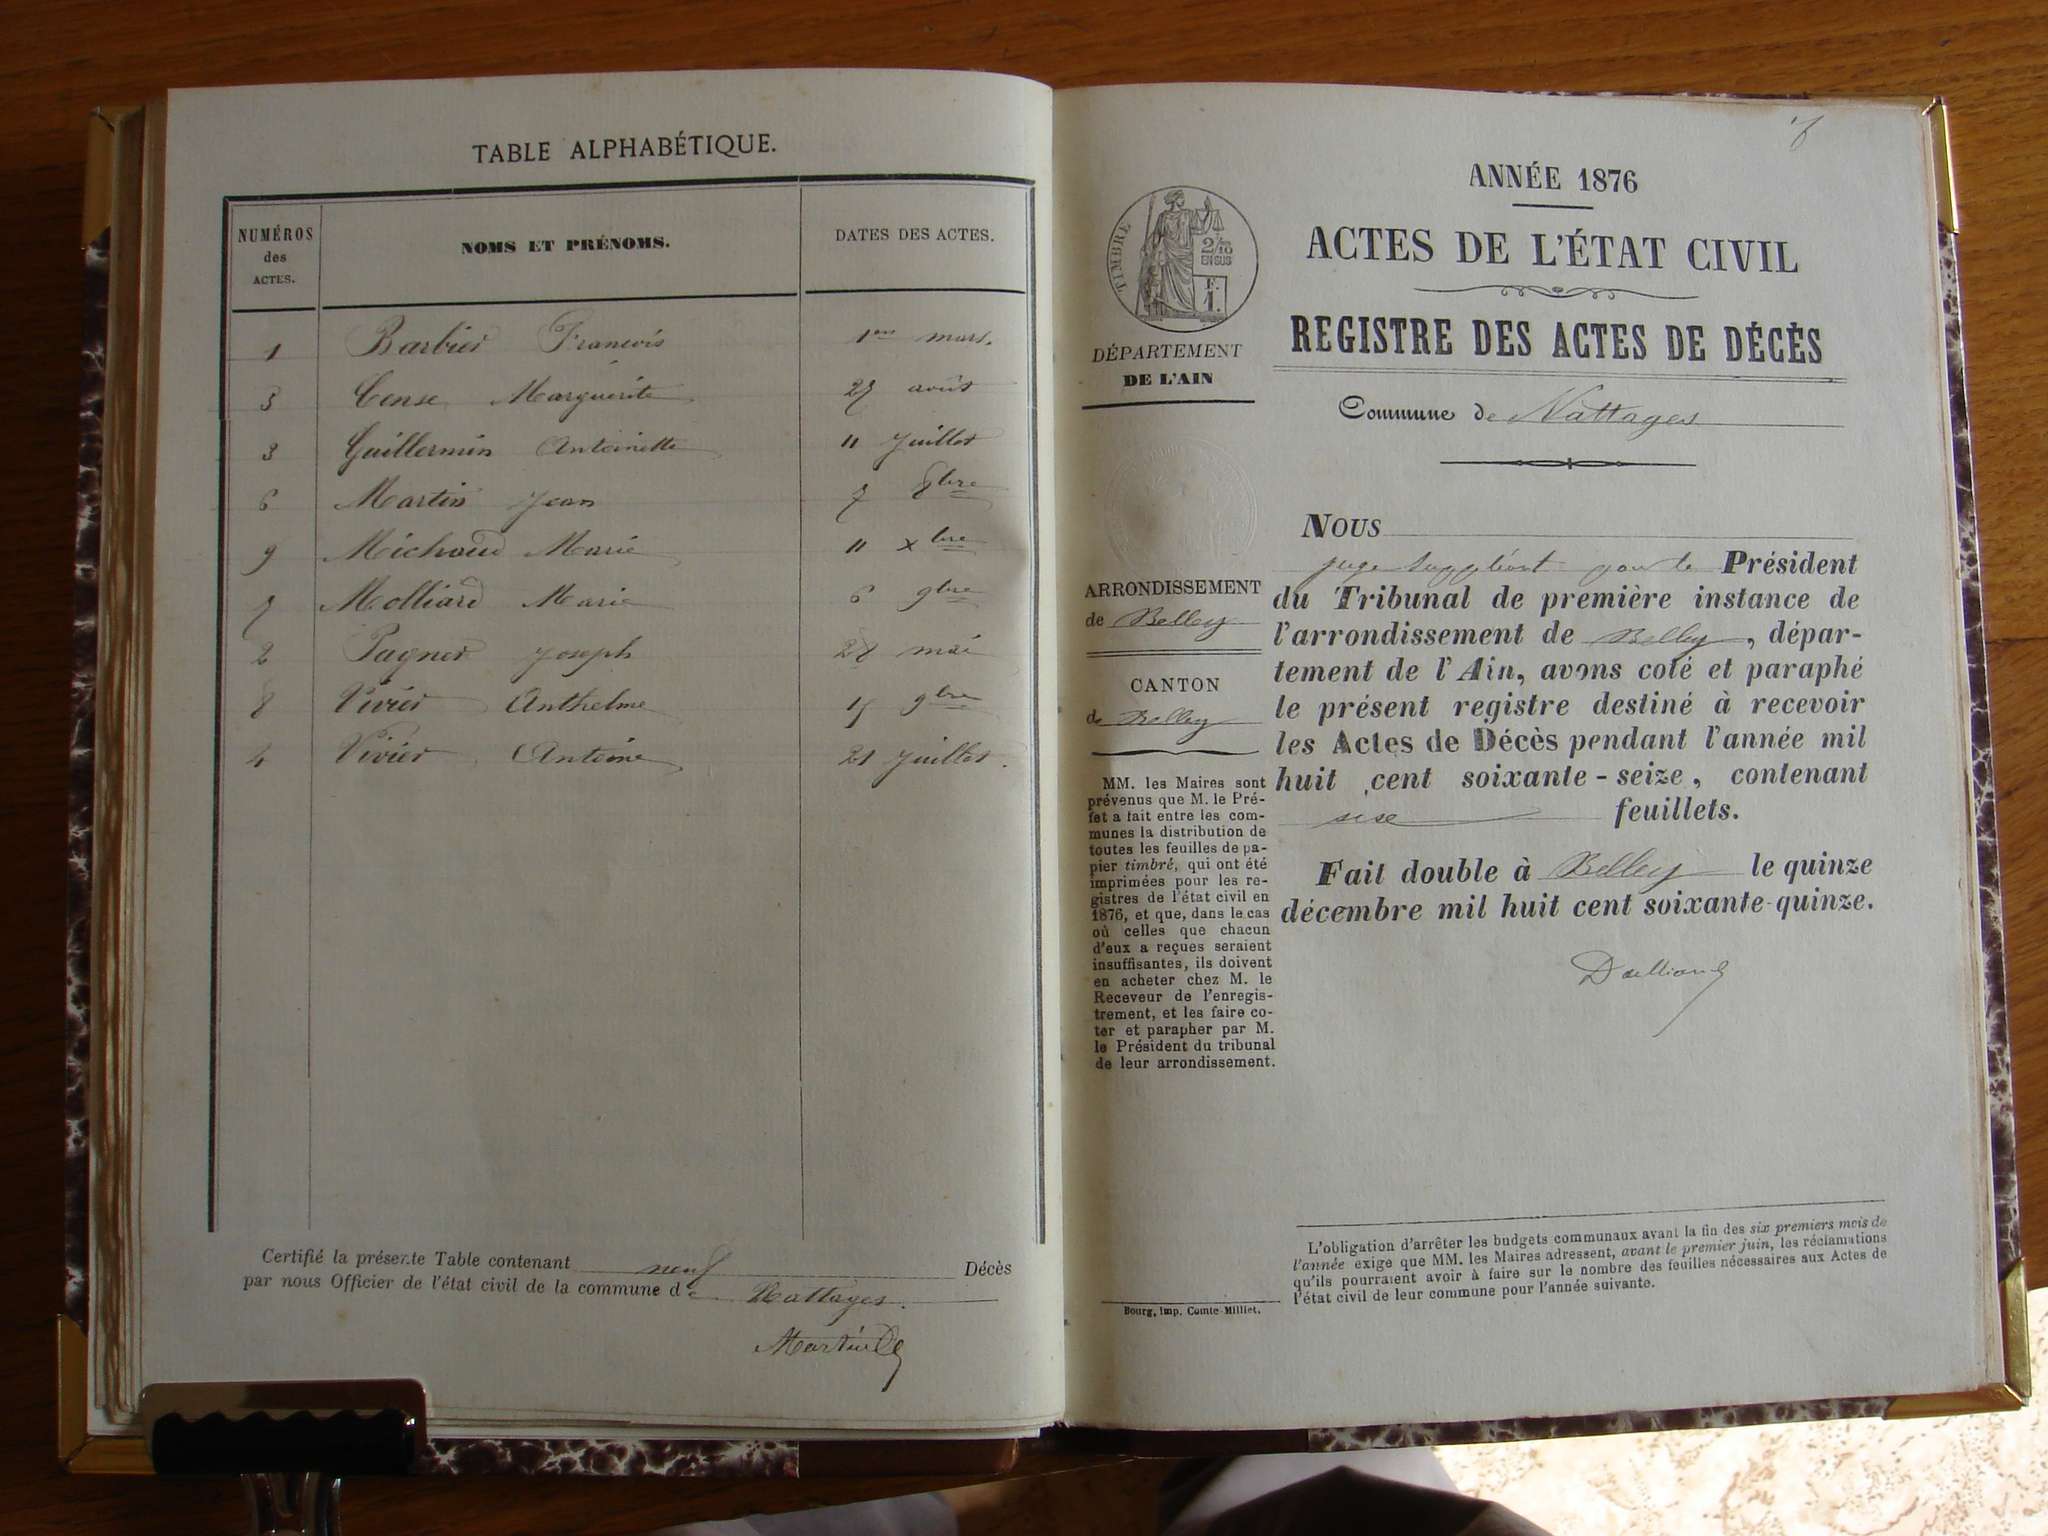 TABLE ALPHABÉTIQUE.
NUMÉROS des ACTES. NOMS ET PRÉNOMS. DATES DES ACTES.
1 Barbier François 1er mars.
5 Cense Marguerite 27 août
3 Guillermin Antoinette 11 juillet
6 Martin Jean 7 8bre
9 Michaud Marie 11 xbre
7 Molliard Marie 6 9bre
2 Pagnet Joseph 28 mai
8 Vivier Anthelme 15 9bre
4 Vivier Antoine 21 juillet.
Certifié la présente Table contenant neuf Décès
par nous Officier de l'état civil de la commune de Nattages.
ANNÉE 1876
ACTES DE L'ÉTAT CIVIL
REGISTRE DES ACTES DE DÉCÈS
Commune de Nattages
TIMBRE
2/10
EN SUS
F.
1.
DÉPARTEMENT
DE L'AIN
ARRONDISSEMENT
de Belley
CANTON
de Belley
MM. les Maires sont
prévenus que M. le Pré-
fet a fait entre les com-
munes la distribution de
toutes les feuilles de pa-
pier timbré, qui ont été
imprimées pour les re-
gistres de l'état civil en
1876, et que, dans le cas
où celles que chacun
d'eux a reçues seraient
insuffisantes, ils doivent
en acheter chez M. le
Receveur de l'enregis-
trement, et les faire co-
ter et parapher par M.
le Président du tribunal
de leur arrondissement.
Bourg, imp. Comte-Milliet.
NOUS
juge suppléant pour le Président
du Tribunal de première instance de
l'arrondissement de Belley, dépar-
tement de l'Ain, avons coté et paraphé
le présent registre destiné à recevoir
les Actes de Décès pendant l'année mil
huit cent soixante-seize, contenant
sise feuillets.
Fait double à Belley le quinze
décembre mil huit cent soixante-quinze.
L'obligation d'arrêter les budgets communaux avant la fin des six premiers mois de
l'année exige que MM. les Maires adressent, avant le premier juin, les réclamations
qu'ils pourraient avoir à faire sur le nombre des feuilles nécessaires aux Actes de
l'état civil de leur commune pour l'année suivante.